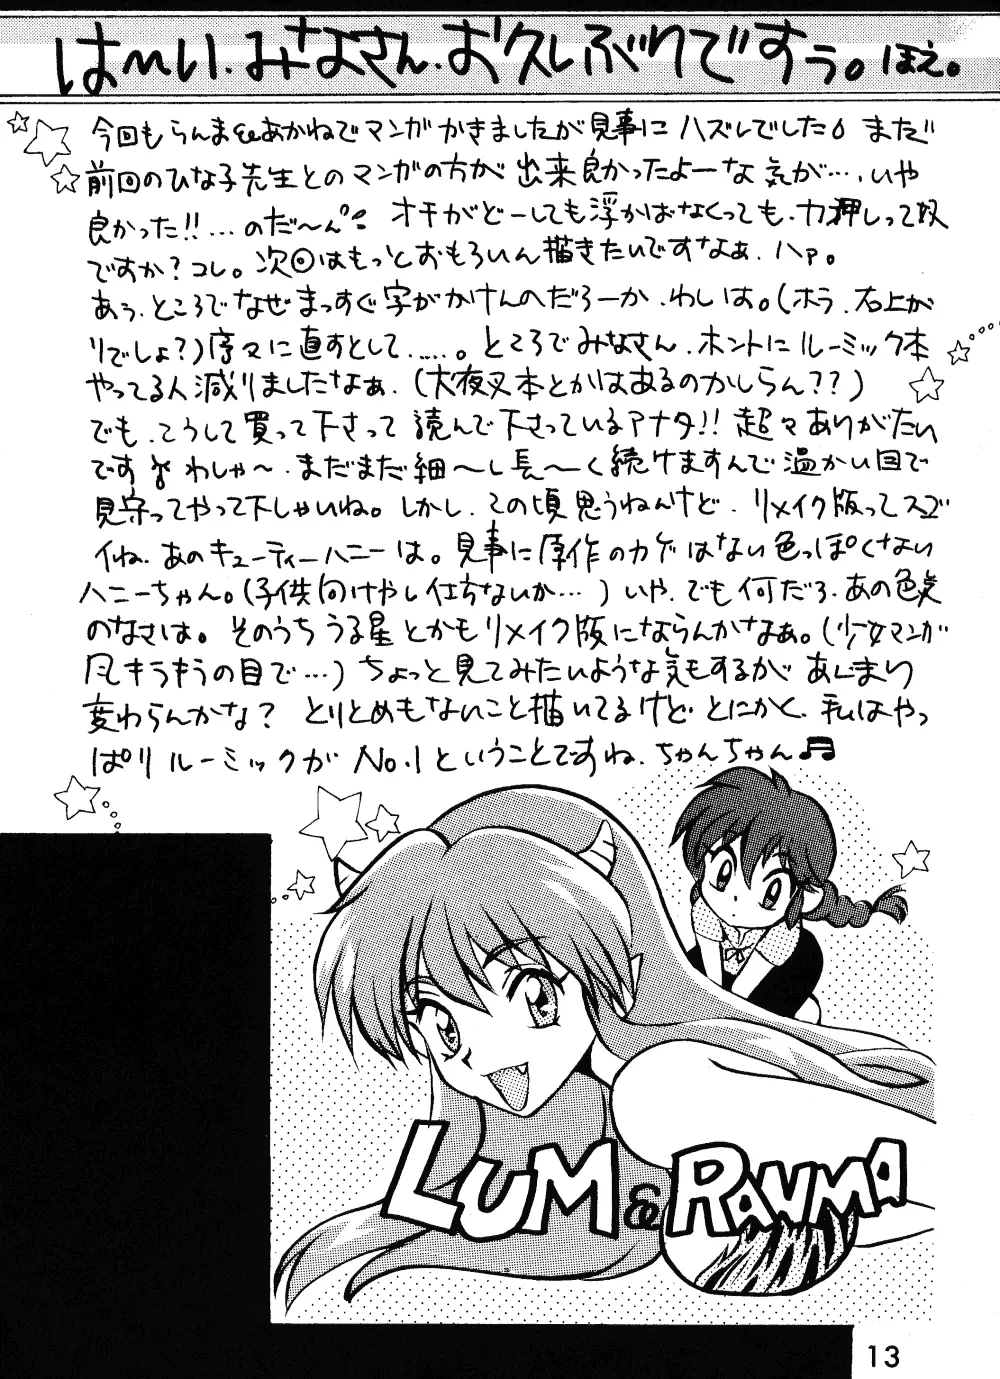 は〜い、みなさん、お久しぶりですぅ。ほえ。
今回もらんま&あかねでマンガかきましたが見事にハズレでした。まだ
前回のひな子先生とのマンガの方が出来良かったよーな気が…、いや
良かった!!…のだ〜ん。オチがどーしても浮かばなくっても、力押しって奴
ですか?コレ。次回はもっとおもろいん描きたいですなぁ、ハァ。
あぅ、ところでなぜまっすぐ字がかけんのだろーか、わしは。(ホラ、右上が
りでしょ?)序々に直すとして……。ところでみなさん、ホントにルーミック本
やってる人減りましたなぁ、(犬夜叉本とかはあるのかしらん??)
でも、こうして買って下さって読んで下さっているアナタ!!超々ありがたい
ですわしゃ〜、まだまだ細〜し長〜く続けますんで温かい目で
見守ってやって下しゃいね。しかし、この頃思うねんけど、リメイク版ってスゴ
イね、あのキューティーハニーは。見事に原作のカゲはない色っぽくない
ハニーちゃん。(子供向けやし仕方ないか…)いや、でも何だろ、あの色気
のなさは。そのうちうる星とかもリメイク版にならんかなぁ。(少女マンガ
風キラキラの目で…)ちょっと見てみたいような気もするが あんまり
変わらんかな? とりとめもないこと描いてるけど とにかく、私はやっ
ぱりルーミックがNo.1ということですね、ちゃんちゃん♬
LUM & RANMA
13